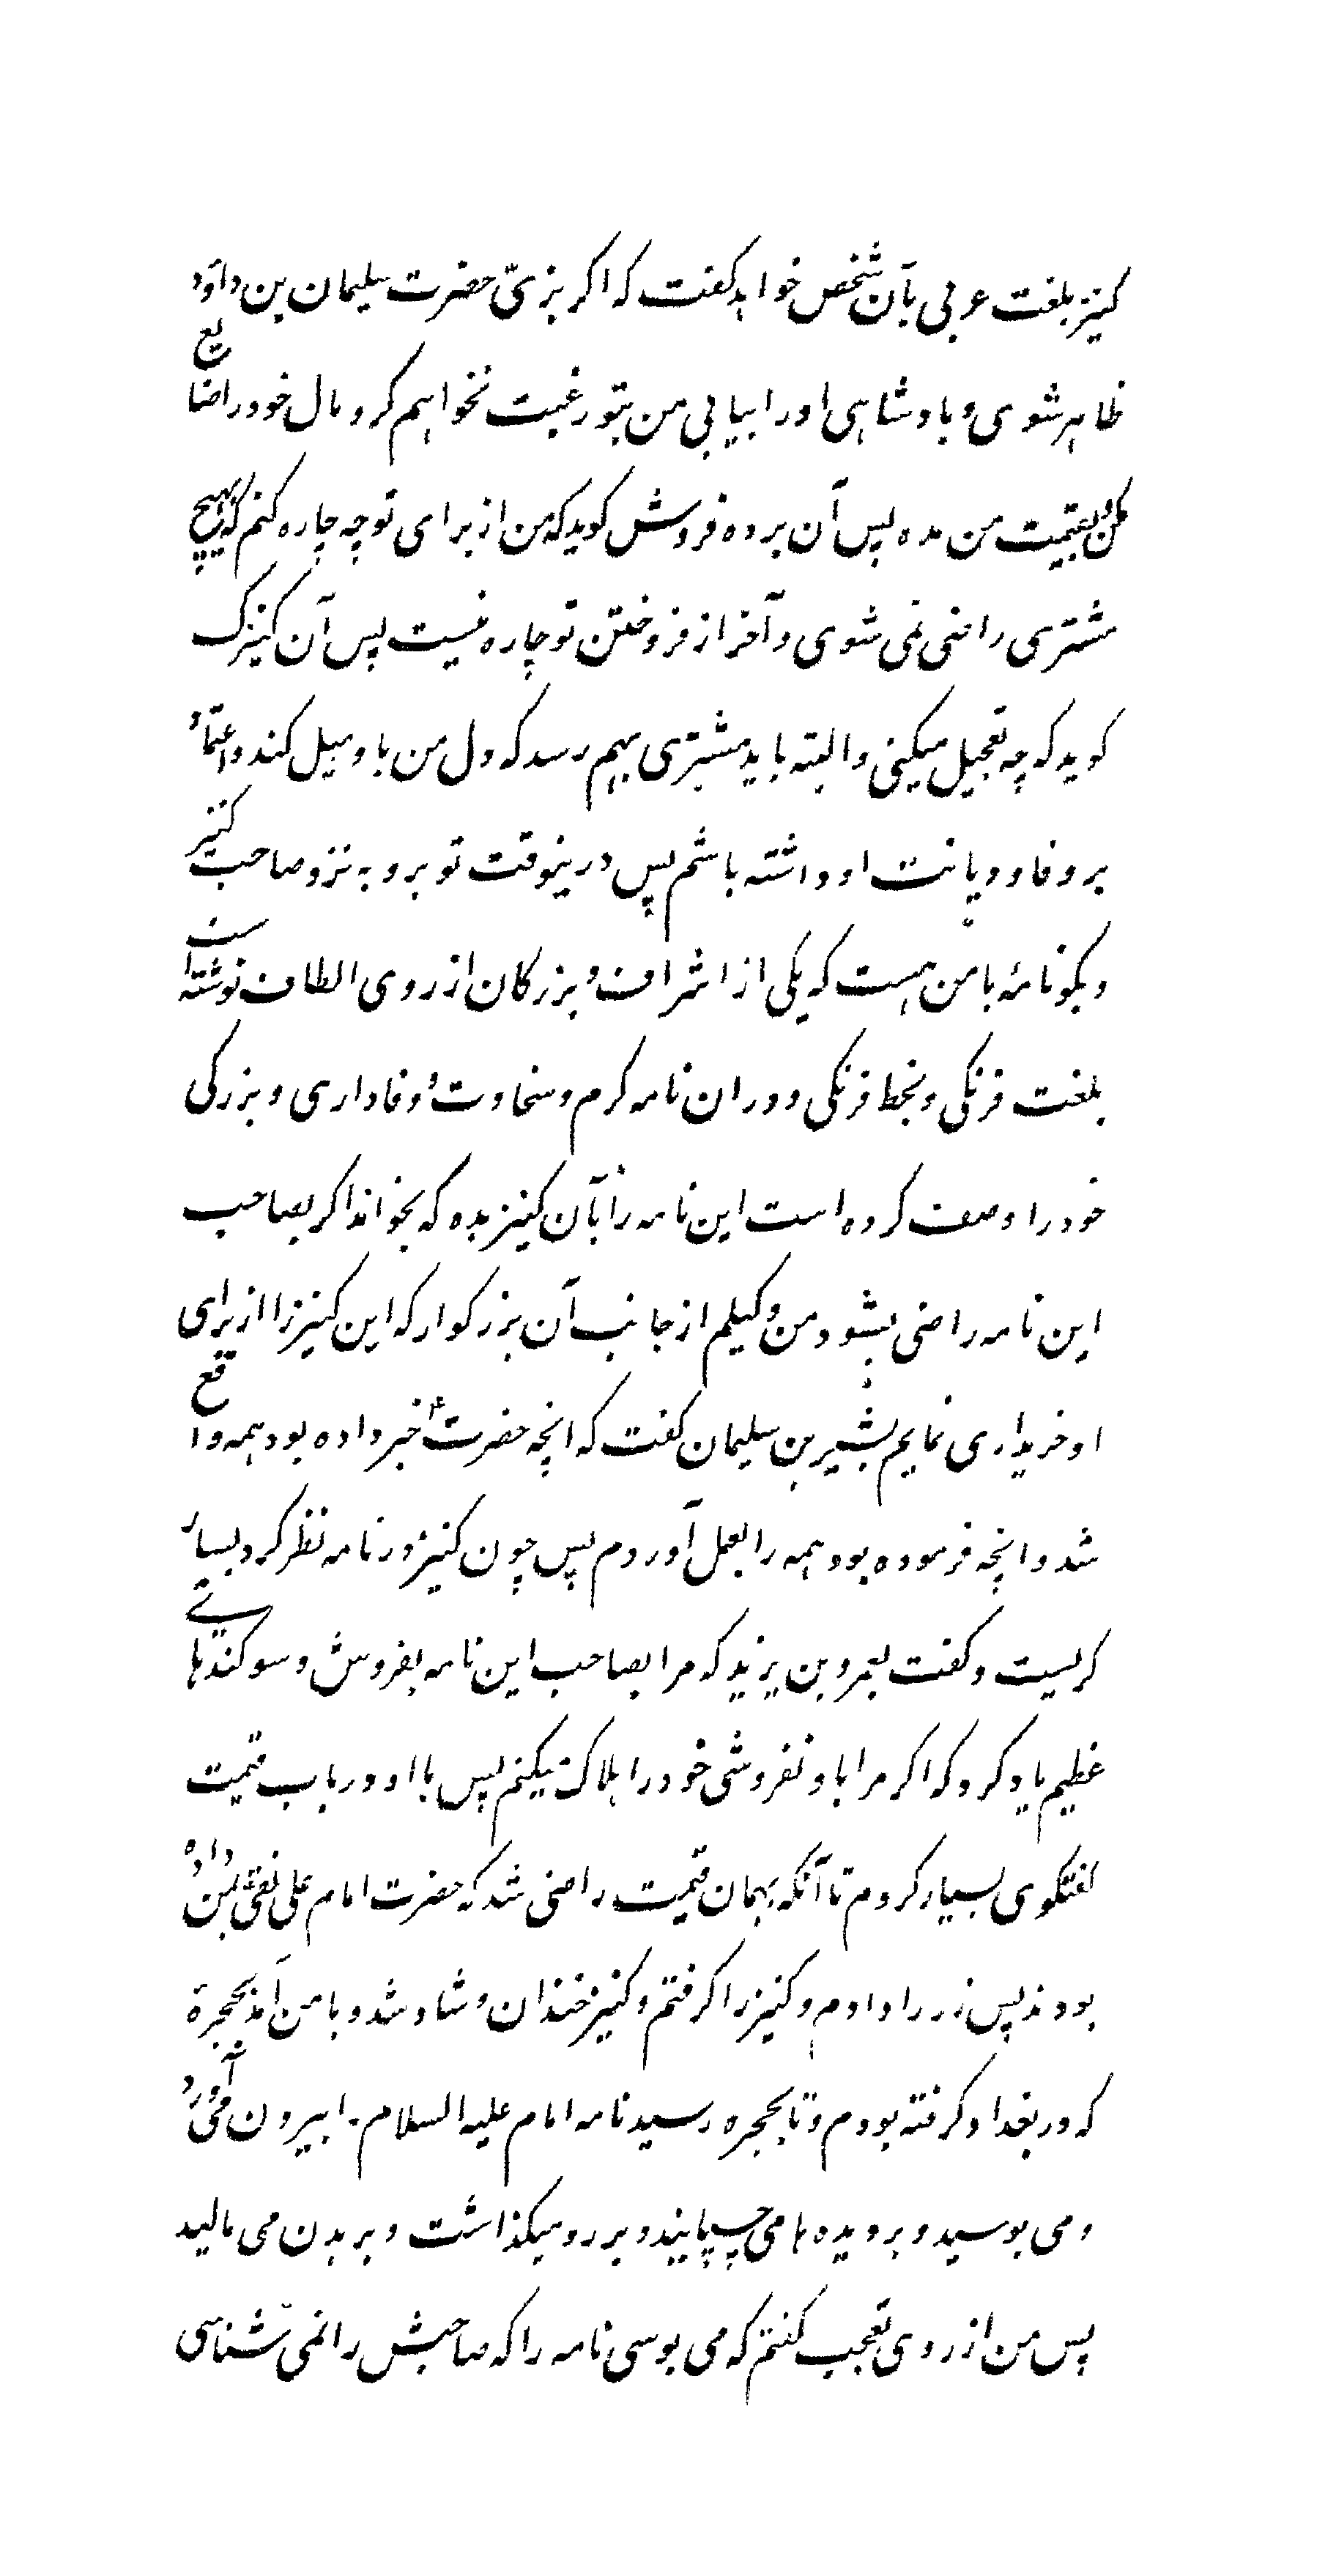 کنیز بلغت عربی بآن شخص خواهد گفت که اگر بزیّ حضرت سلیمان بن داود
ظاهر شوی و پادشاهی او را بیابی من بتو رغبت نخواهم کرد مال خود را ضایع
مکن و بقیمت من مده پس آن برده فروش گوید که من از برای تو چه چاره کنم که بهیچ
مشتری راضی نمی شوی و آخر از فروختن تو چاره نیست پس آن کنیزک
گوید که چه تعجیل میکنی و البته باید مشتری بهم رسد که دل من باو میل کند و اعتماد
بر وفا و دیانت او داشته باشم پس درینوقت تو برو به نزد صاحب کنیز
و بگو نامهٔ با من هست که یکی از اشراف و بزرگان از روی الطاف نوشته است
بلغت فرنگی و بخط فرنگی و در ان نامه کرم و سخاوت و وفاداری و بزرگی
خود را وصف کرده است این نامه را بآن کنیز بده که بخواند اگر بصاحب
این نامه راضی بشود من وکیلم از جانب آن بزرگوار که این کنیز را از برای
او خریداری نمایم بشیر بن سلیمان گفت که انچه حضرت ع خبر داده بود همه واقع
شد و انچه فرموده بود همه را بعمل آوردم پس چون کنیز در نامه نظر کرد بسیار
گریست و گفت بعمرو بن یزید که مرا بصاحب این نامه بفروش و سوگندهای
عظیم یاد کرد که اگر مرا باو نفروشی خود را هلاک میکنم پس با او در باب قیمت
گفتگوی بسیار کردم تا آنکه بهمان قیمت راضی شد که حضرت امام علی نقی بمن داده
بودند پس زر را دادم و کنیز را گرفتم و کنیز خندان و شاد شد و با من آمد بحجرهٔ
که در بغداد گرفته بودم و تا بحجره رسید نامه امام علیه السلام را بیرون می آورد
و می بوسید و بر دیده ها می چسپانید و بر رو میگذاشت و بر بدن می مالید
پس من از روی تعجب گفتم که می بوسی نامه را که صاحبش را نمی شناسی